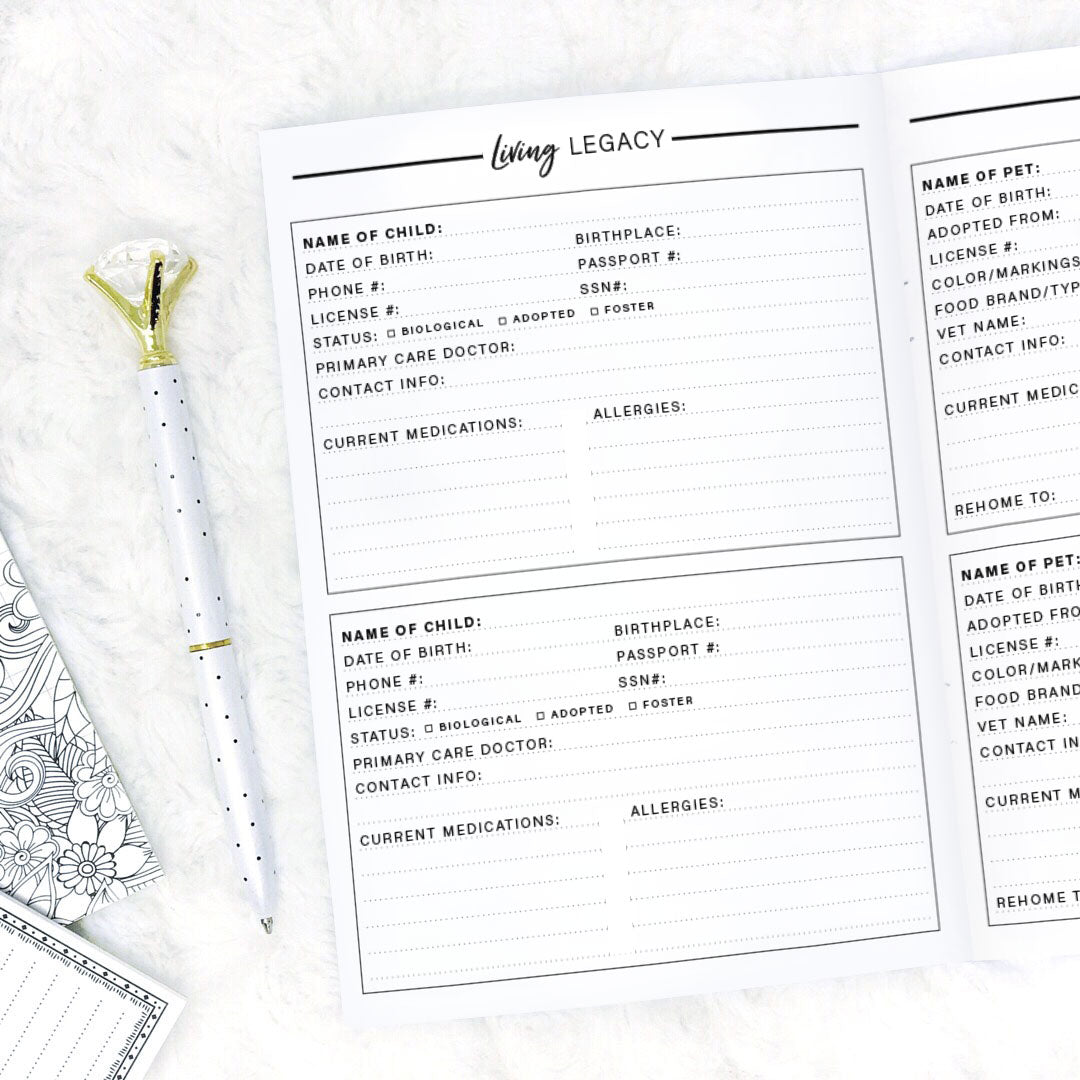 Living LEGACY
NAME OF CHILD:
BIRTHPLACE:
DATE OF BIRTH:
PASSPORT #:
PHONE #:
SSN#:
LICENSE #:
STATUS: BIOLOGICAL ADOPTED FOSTER
PRIMARY CARE DOCTOR:
CONTACT INFO:
CURRENT MEDICATIONS:
ALLERGIES:
NAME OF CHILD:
BIRTHPLACE:
DATE OF BIRTH:
PASSPORT #:
PHONE #:
SSN#:
LICENSE #:
STATUS: BIOLOGICAL ADOPTED FOSTER
PRIMARY CARE DOCTOR:
CONTACT INFO:
CURRENT MEDICATIONS:
ALLERGIES:
NAME OF PET:
DATE OF BIRTH:
ADOPTED FROM:
LICENSE #:
COLOR/MARKINGS
FOOD BRAND/TYP
VET NAME:
CONTACT INFO:
CURRENT MEDIC
REHOME TO:
NAME OF PET:
DATE OF BIRTH
ADOPTED FRO
LICENSE #:
COLOR/MARK
FOOD BRAND
VET NAME:
CONTACT IN
CURRENT M
REHOME T